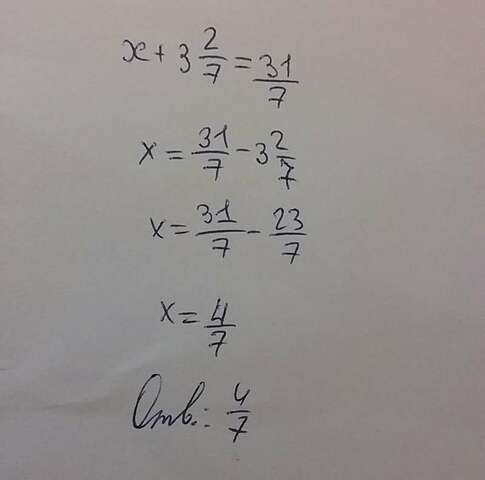 x + 3 2/7 = 31/7
x = 31/7 - 3 2/7
x = 31/7 - 23/7
x = 4/7
Отв.: 4/7